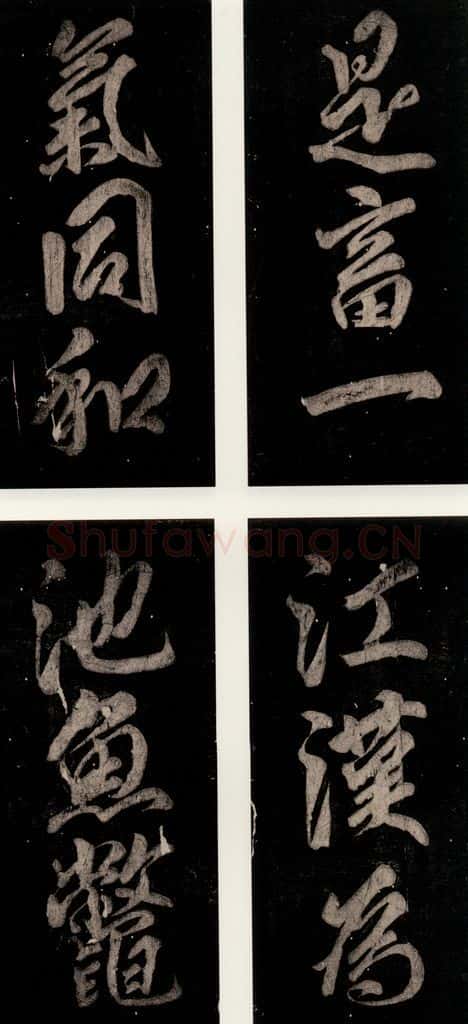 是畜一
氣同和
Shufawang.CN
江漢為
池魚鼈